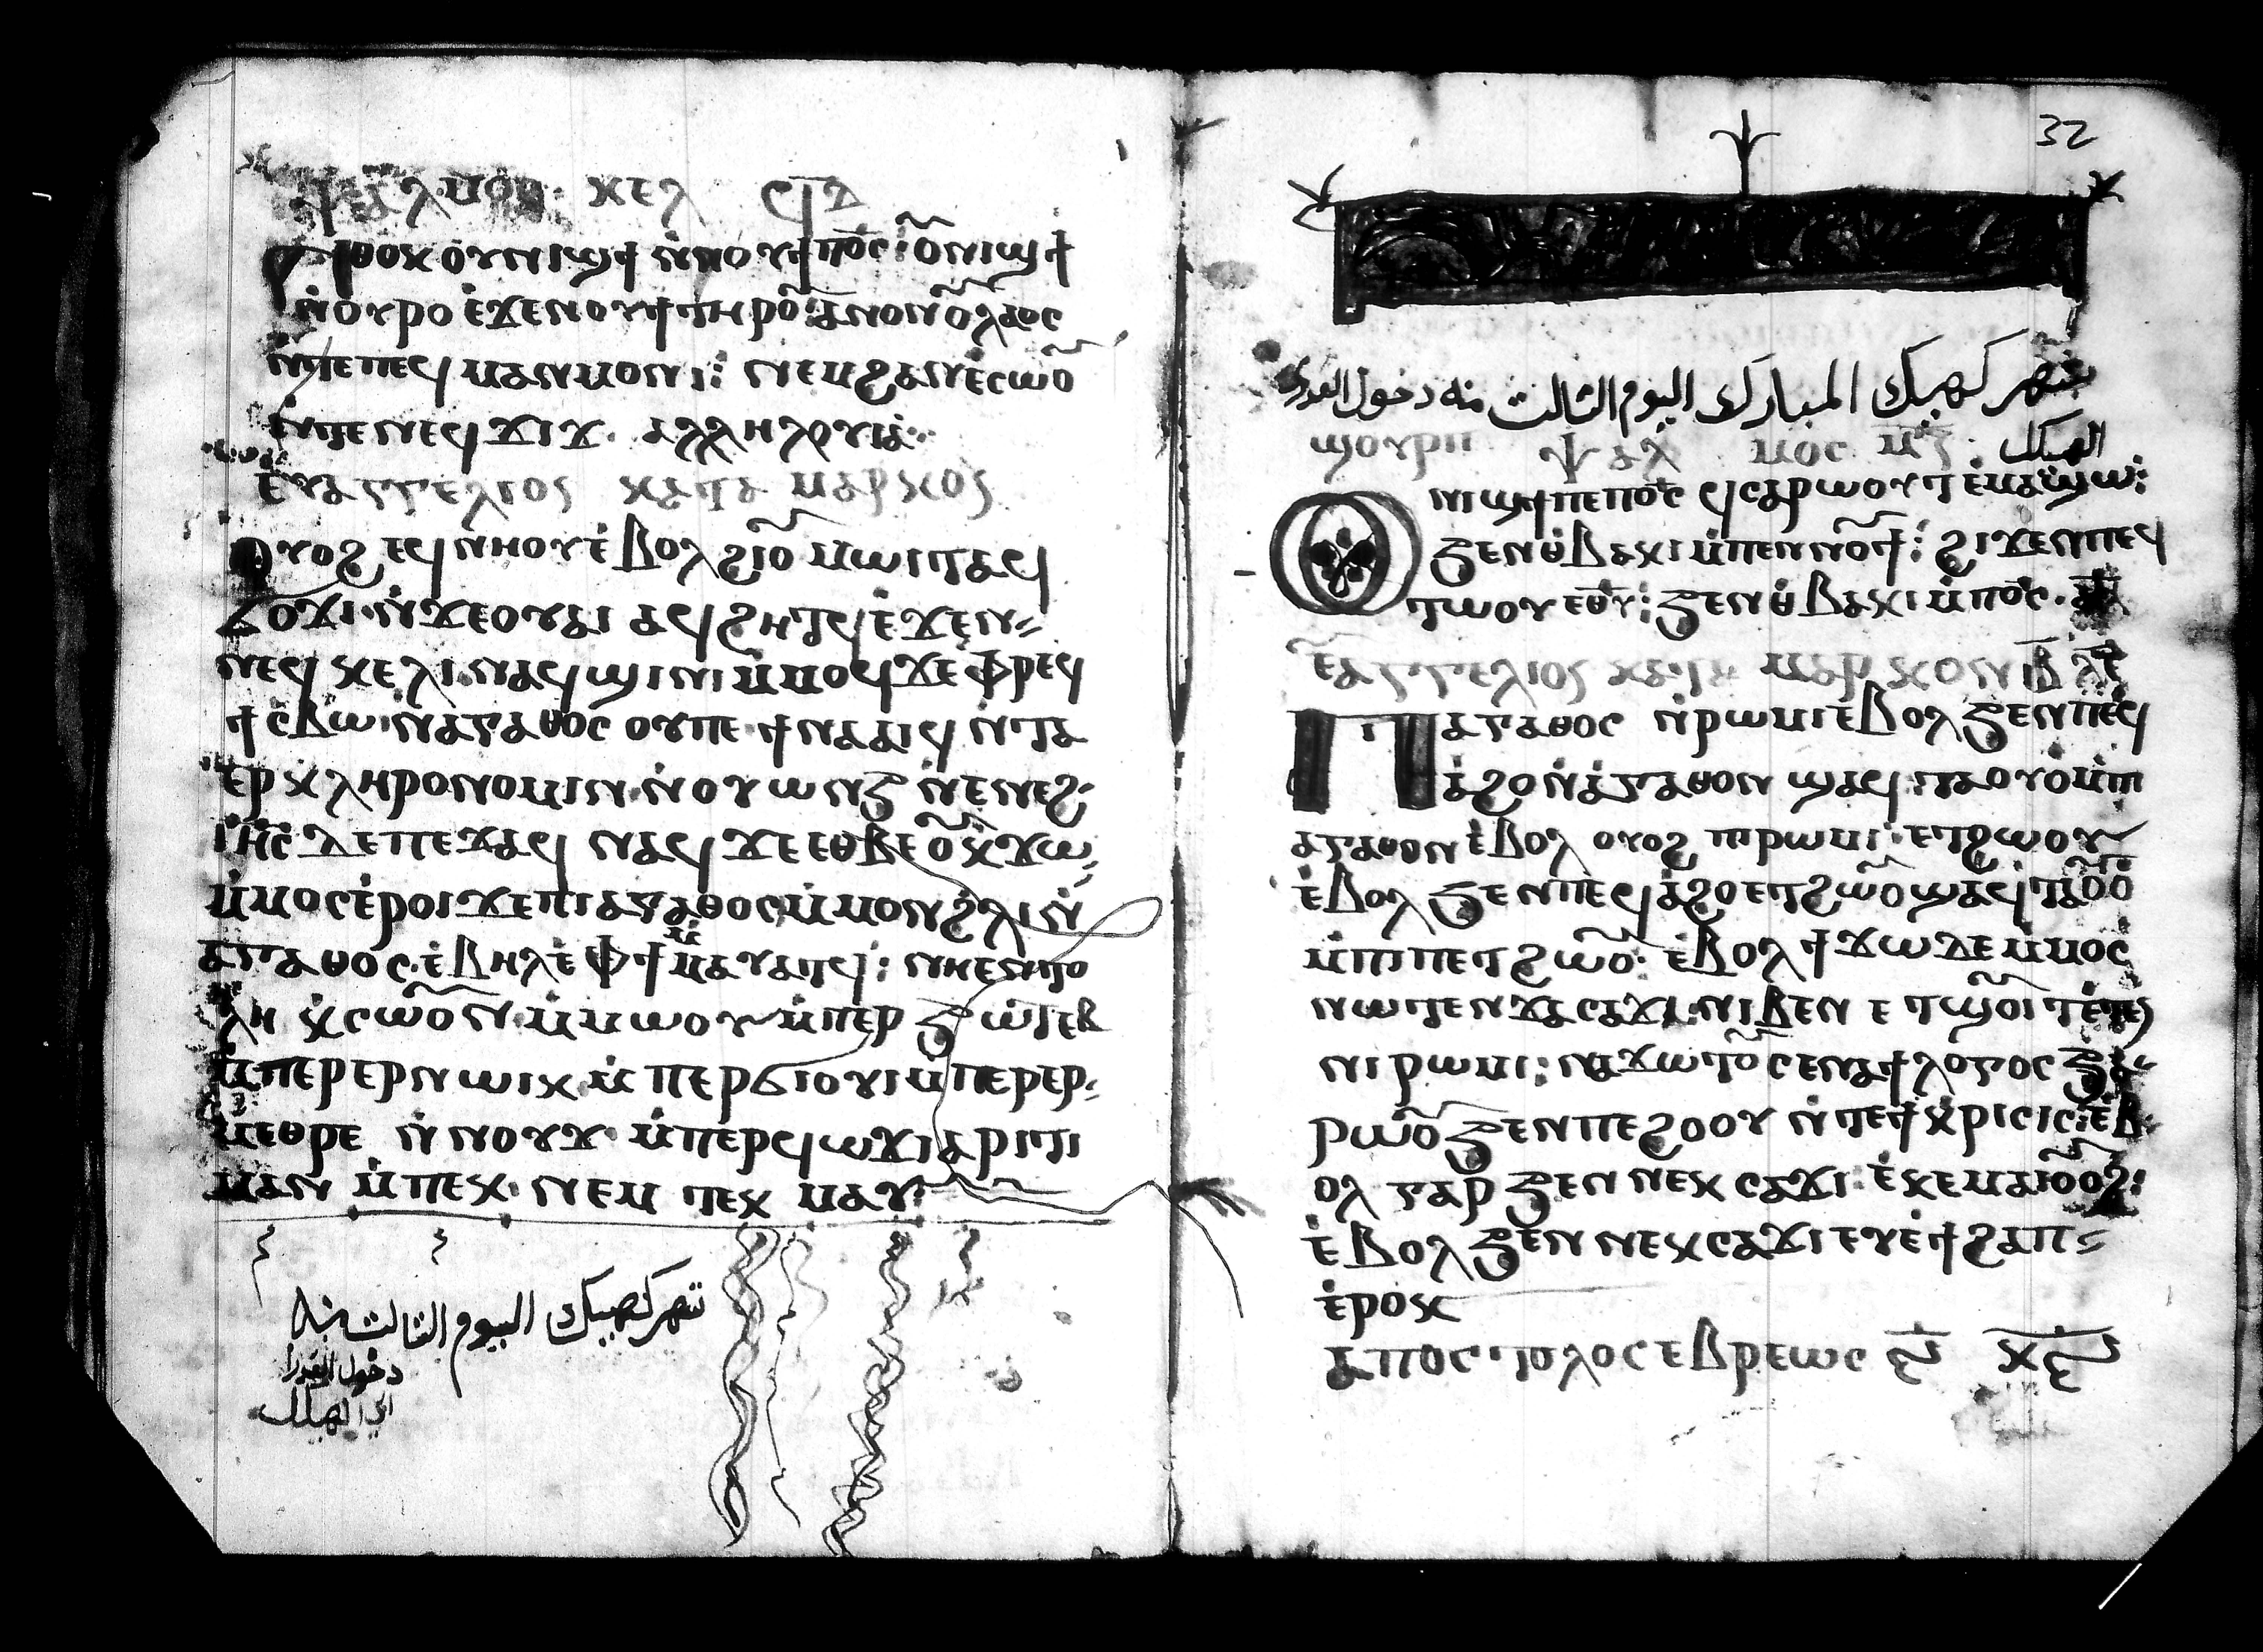 ⲯⲁⲗⲙⲟⲥ ⲕⲉⲗ ϥⲇ
ⲛⲑⲟⲕ ⲟⲩⲛⲓϣϯ ⲛⲛⲟⲩϯ ⲡⲟ̅ⲥ̅: ⲟ̅ⲛⲓϣϯ
ⲛ̇ⲟⲩⲣⲟ ⲉ̇ϫⲉⲛⲟⲩϯ ⲧⲏⲣⲟ̅: ⲁⲛⲟⲛ ⲟ̅ⲗⲁⲟⲥ
ⲛ̇ⲧⲉⲡⲉϥ ⲙⲁⲛⲙⲟⲛⲓ: ⲛⲉⲙ ϩⲁⲛⲉ̇ⲥⲱⲟ̅
ⲛ̇ⲧⲉ ⲛⲉϥϫⲓϫ. ⲁⲗⲗⲏⲗⲟⲩⲓⲁ:
ⲉⲩⲁⲅⲅⲉⲗⲓⲟⲥ ⲕⲁⲧⲁ ⲙⲁⲣⲕⲟⲥ
ⲟⲩⲟϩ ⲉϥⲛⲏⲟⲩ ⲉ̇ⲃⲟⲗ ϩⲓⲟ̅ ⲙⲱⲓⲧ ⲁϥ
ϭⲟϫⲓ ⲛ̇ϫⲉⲟⲩⲁⲓ ⲁϥϩⲓⲧϥ ⲉ̇ϫⲉⲛ
ⲛⲉϥ ⲕⲉⲗⲓ ⲛⲁϥϣⲓⲛⲓ ⲙ̇ⲙⲟϥ ϫⲉ ⲫⲣⲉϥ
ϯⲥⲃⲱ ⲛⲁⲅⲁⲑⲟⲥ ⲟⲩⲡⲉ ϯⲛⲁⲁⲓϥ ⲛ̇ⲧⲁ
ⲉⲣⲕⲗⲏⲣⲟⲛⲟⲙⲓⲛ ⲛ̇ⲟⲩⲱⲛϧ ⲛ̇ⲉⲛⲉϩ
ⲓⲏ̅ⲥ̅ ⲇⲉ ⲡⲉϫⲁϥ ⲛⲁϥ ϫⲉ ⲉⲑⲃⲉⲟ̅ ⲕϫⲱ
ⲙ̇ⲙⲟⲥ ⲉ̇ⲣⲟⲓ ϫⲉ ⲡⲓⲁⲅⲁⲑⲟⲥ ⲙ̇ⲙⲟⲛ ϩⲗⲓ ⲛ̇
ⲁⲅⲁⲑⲟⲥ ⲉ̇ⲃⲏⲗ ⲉ̇ⲫϯ ⲙ̇ⲙⲁⲩⲁⲧϥ: ⲛⲓⲉⲛⲧⲟ
ⲗⲏ ⲕⲥⲱⲟ̅ⲛ ⲙ̇ⲙⲱⲟⲩ ⲙ̇ⲡⲉⲣϧⲱⲧⲉⲃ
ⲙ̇ⲡⲉⲣⲉⲣⲛⲱⲓⲕ ⲙ̇ⲡⲉⲣϭⲓⲟⲩⲓ ⲙ̇ⲡⲉⲣⲉⲣ
ⲙⲉⲑⲣⲉ ⲛ̇ⲛⲟⲩϫ ⲙ̇ⲡⲉⲣϥⲱϫⲓ ⲁⲣⲓⲧⲓ
ⲙⲁⲛ ⲙ̇ⲡⲉⲕ ⲛⲉⲙ ⲧⲉⲕ ⲙⲁⲩ
شهر كهيك اليوم الثالث منه
دخول العدرا
الى الهيكل
32
شهر كهيك المبارك اليوم الثالث منه دخول العدرى
الهيكل
ϣⲟⲩⲣⲡ ⲯⲁⲗ ⲙⲟⲥ ⲙ̅ⲍ̅
ⲟⲛⲓϣϯ ⲡⲉ ⲡⲟ̅ⲥ̅ ϥⲥⲙⲁⲣⲱⲟⲩⲧ ⲉ̇ⲙⲁϣⲱ:
ϧⲉⲛ ⲑ̇ⲃⲁⲕⲓ ⲙ̇ⲡⲉⲛⲛⲟ̅ϯ: ϩⲓϫⲉⲛ ⲡⲉϥ
ⲧⲱⲟⲩ ⲉ̅ⲑ̅ⲩ̅: ϧⲉⲛ ⲑ̇ⲃⲁⲕⲓ ⲙ̇ⲡⲟ̅ⲥ̅.
ⲉ̅ⲁⲅⲅⲉⲗⲓⲟⲥ ⲕⲁⲧⲁ ⲙⲁⲣⲕⲟⲛ ⲓ̅ⲃ̅ ⲗ̅ⲉ̅
ⲡⲓⲁⲅⲁⲑⲟⲥ ⲛ̇ⲣⲱⲙⲓ ⲉ̇ⲃⲟⲗ ϧⲉⲛ ⲡⲉϥ
ⲁ̇ϩⲟ ⲛ̇ⲁ̇ⲅⲁⲑⲟⲛ ϣⲁϥⲧⲁⲟⲩⲟ̇ ⲙ̇ⲡⲓ
ⲁⲅⲁⲑⲟⲛ ⲉ̇ⲃⲟⲗ ⲟⲩⲟϩ ⲡⲓⲣⲱⲙⲓ: ⲉⲧϩⲱⲟⲩ
ⲉ̇ⲃⲟⲗ ϧⲉⲛ ⲡⲉϥⲁ̇ϩⲟ ⲉⲧϩⲱⲟ̅ ϣⲁϥⲧⲁⲟ̅ⲟ̅
ⲙ̇ⲡⲓⲡⲉⲧϩⲱⲟ̅: ⲉ̇ⲃⲟⲗ ϯϫⲱ ⲇⲉ ⲙ̇ⲙⲟⲥ
ⲛⲱⲧⲉⲛ ϫⲉ ⲥⲁϫⲓ ⲛⲓⲃⲉⲛ ⲉⲧϣⲟ̅ⲓⲧ
ⲛⲓⲣⲱⲙⲓ: ⲛⲁϫⲱⲧⲟ̅ ⲥⲉⲛⲁϯ ⲗⲟⲅⲟⲥ ϧⲁ
ⲣⲱⲟ̅ ϧⲉⲛ ⲡⲉϩⲟⲟⲩ ⲛ̇ⲧⲉϯ ⲕⲣⲓⲥⲓⲥ: ⲉ̇ⲃ
ⲟⲗ ⲅⲁⲣ ϧⲉⲛ ⲛⲉⲕⲥⲁϫⲓ ⲉ̇ⲕⲉⲙⲁⲓⲟ̅ⲟϩ:
ⲉ̇ⲃⲟⲗ ϧⲉⲛ ⲛⲉⲕⲥⲁϫⲓ ⲉⲩⲉ̇ϯϩⲁⲡ
ⲉ̇ⲣⲟⲕ
ⲁⲡⲟⲥⲧⲟⲗⲟⲥ ⲉⲃⲣⲉⲱⲥ